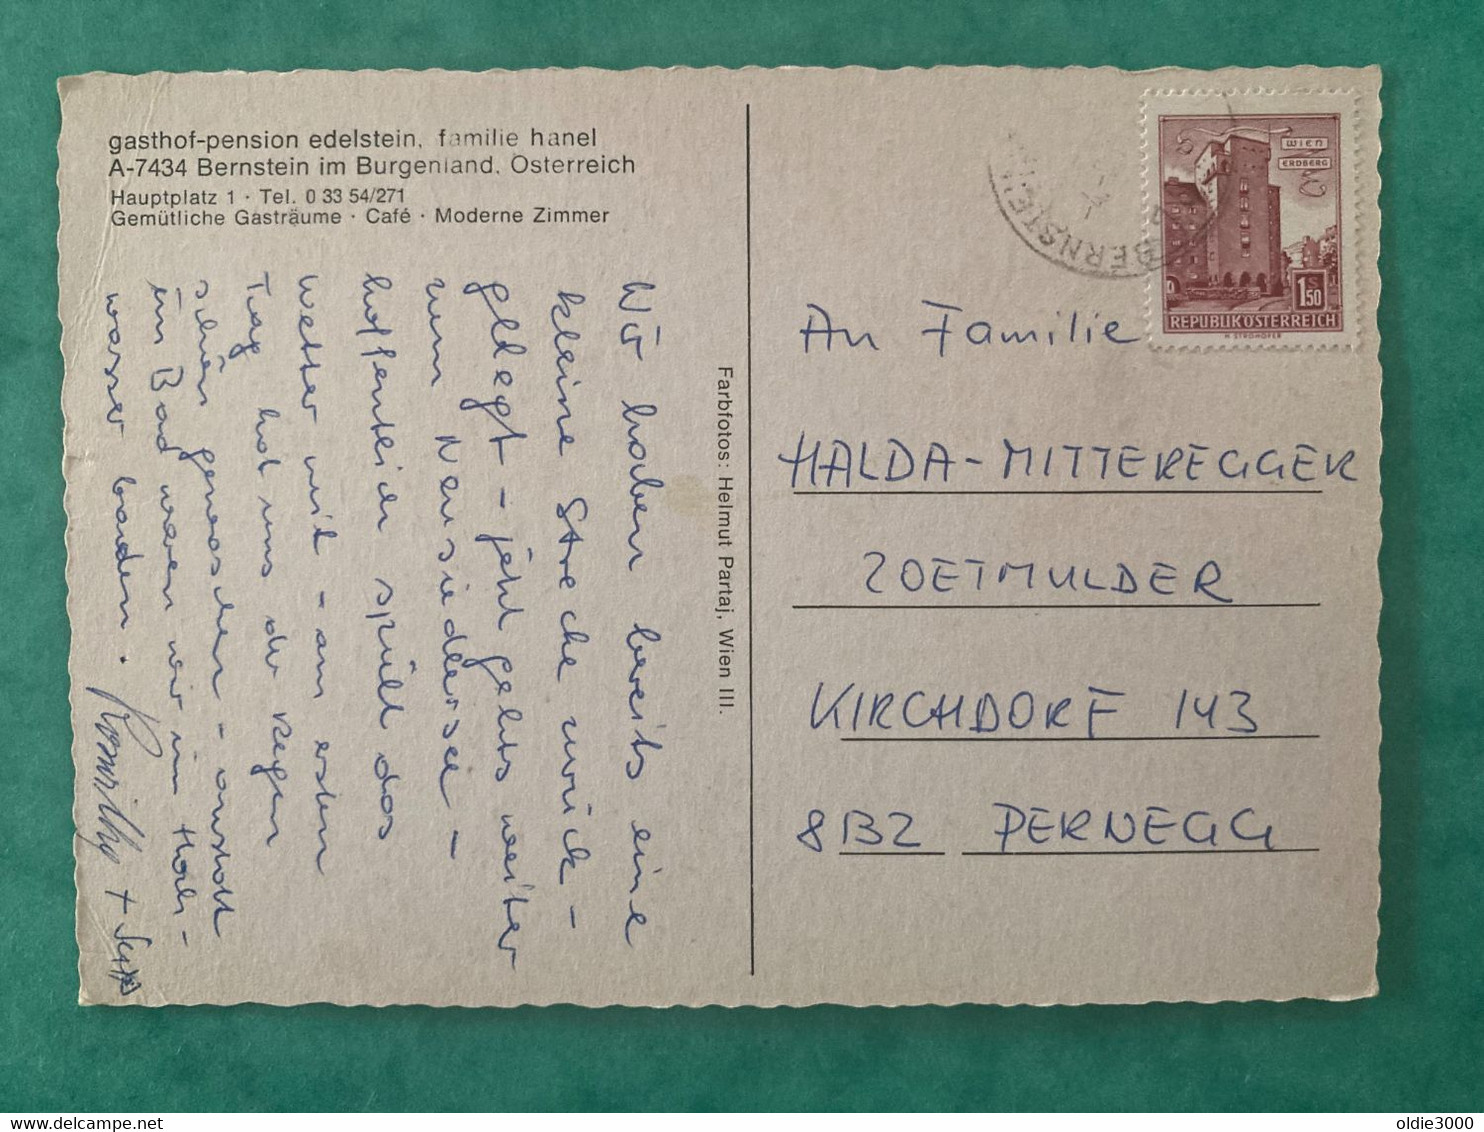 gasthof-pension edelstein, familie hanel
A-7434 Bernstein im Burgenland, Österreich
Hauptplatz 1 · Tel. 0 33 54/271
Gemütliche Gasträume · Café · Moderne Zimmer
Wir haben bereits eine
kleine Strecke zurück-
gelegt - jetzt gehts weiter
zum Neusiedlersee -
hoffentlich spielt das
Wetter mit - am ersten
Tag hat uns der Regen
schön gewaschen - anstatt
im Bad waren wir im Hoch-
wasser baden.
Farbfotos: Helmut Partaj, Wien III.
BERNSTEIN
WIEN
ERDBERG
1S50
REPUBLIK ÖSTERREICH
H. STROHOFER
An Familie
HALDA-MITTEREGGER
ZOETMULDER
KIRCHDORF 143
8132 PERNEGG
oldie3000